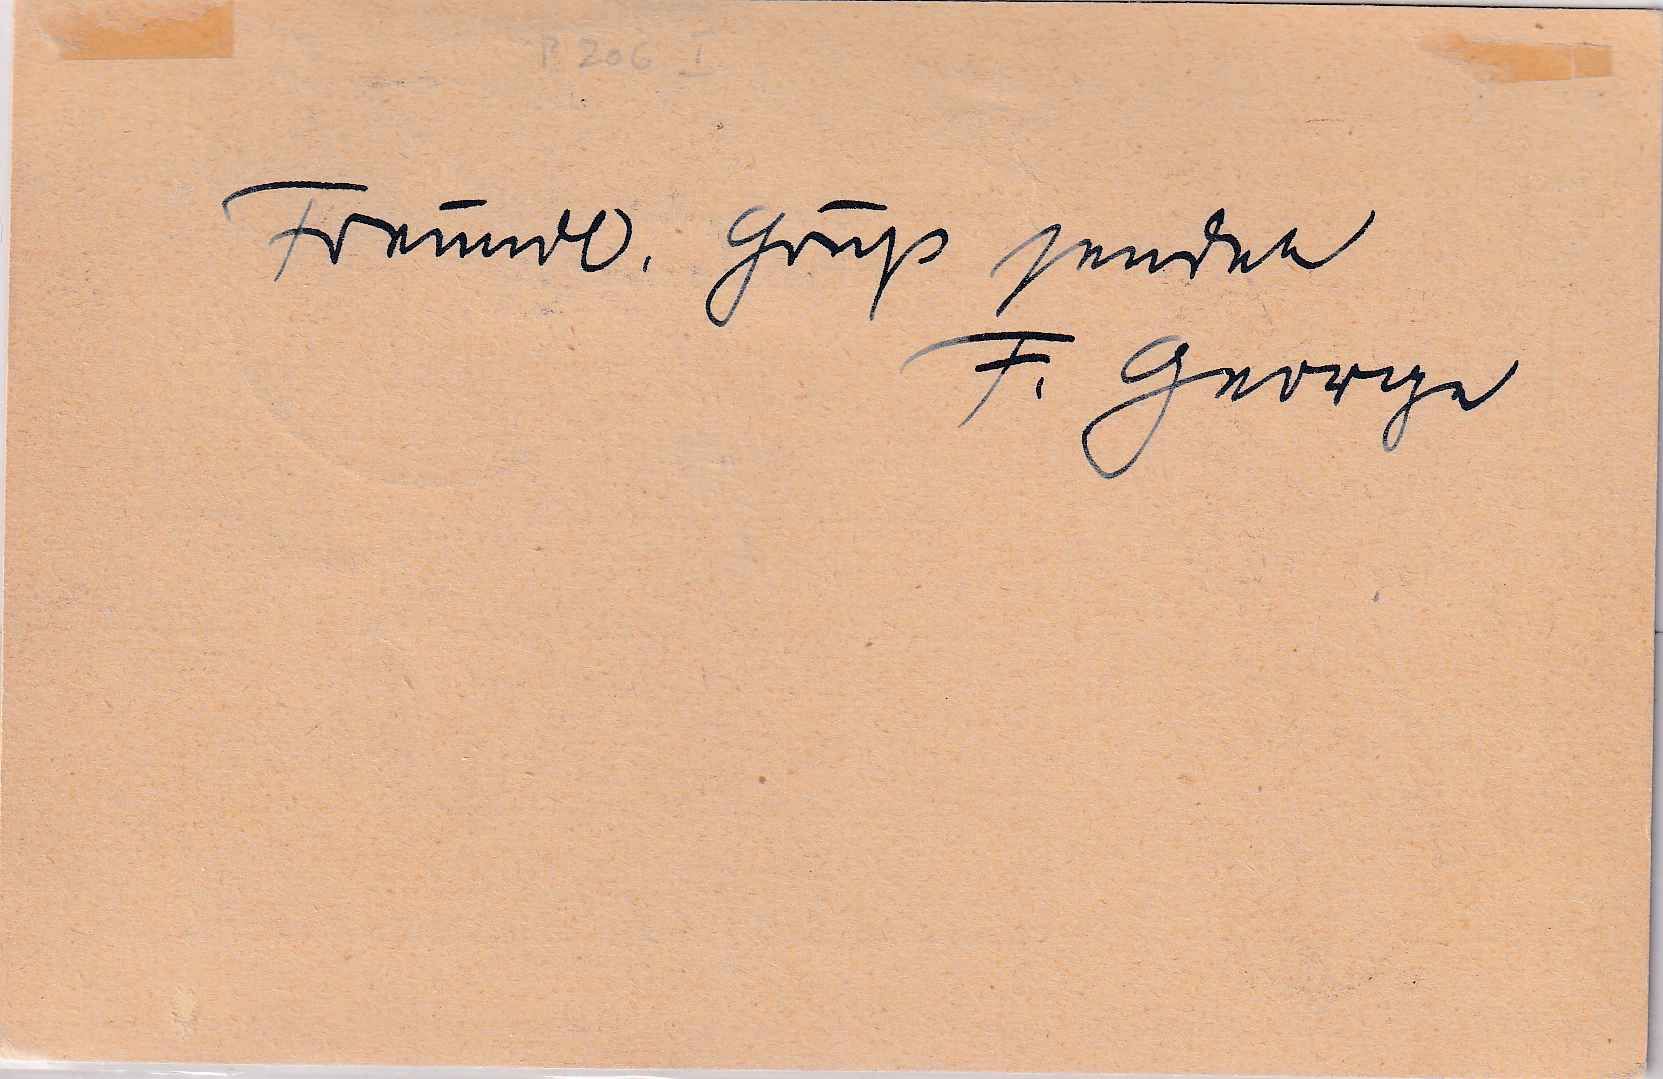 P 206 I
Freundl. Gruß sendet
F. George